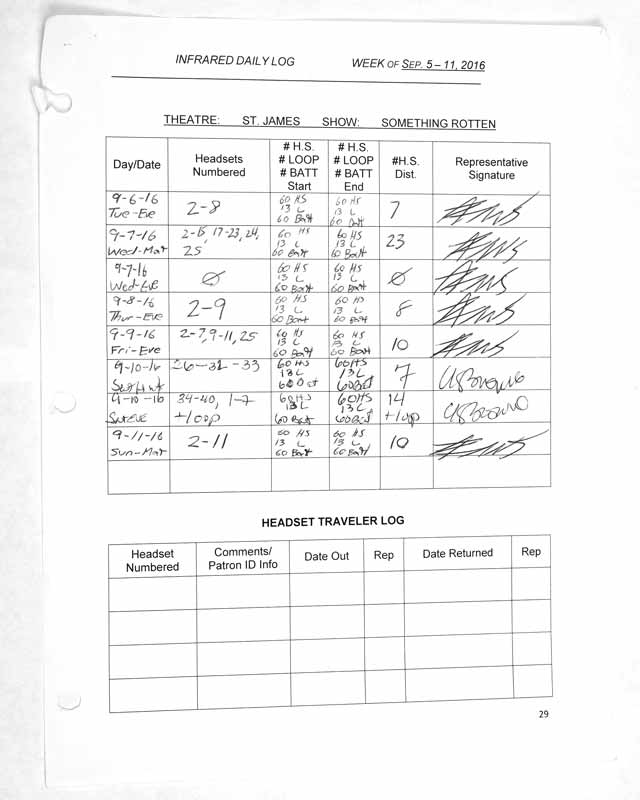 INFRARED DAILY LOG WEEK OF SEP. 5 – 11, 2016
THEATRE: ST. JAMES SHOW: SOMETHING ROTTEN
Day/Date
Headsets
Numbered
# H.S.
# LOOP
# BATT
Start
# H.S.
# LOOP
# BATT
End
#H.S.
Dist.
Representative
Signature
9-6-16
Tue-Eve
2-8
60 HS
13 L
60 Batt
60 HS
13 L
60 Batt
7
9-7-16
Wed-Mat
2-15, 17-23, 24,
25
60 HS
13 L
60 Batt
60 HS
13 L
60 Batt
23
9-7-16
Wed-Eve
Ø
60 HS
13 L
60 Batt
60 HS
13 L
60 Batt
Ø
9-8-16
Thur-Eve
2-9
60 HS
13 L
60 Batt
60 HS
13 L
60 Batt
8
9-9-16
Fri-Eve
2-7, 9-11, 25
60 HS
13 L
60 Batt
60 HS
13 L
60 Batt
10
9-10-16
26-31-33
60 HS
13 L
60 HS
13 L
7
9-10-16
Sat Eve
34-40, 1-7
+loop
60 HS
13 L
60 Batt
60 HS
13 L
60 Batt
14
+loop
9-11-16
Sun-Mat
2-11
60 HS
13 L
60 Batt
60 HS
13 L
60 Batt
10
HEADSET TRAVELER LOG
Headset
Numbered
Comments/
Patron ID Info
Date Out
Rep
Date Returned
Rep
29